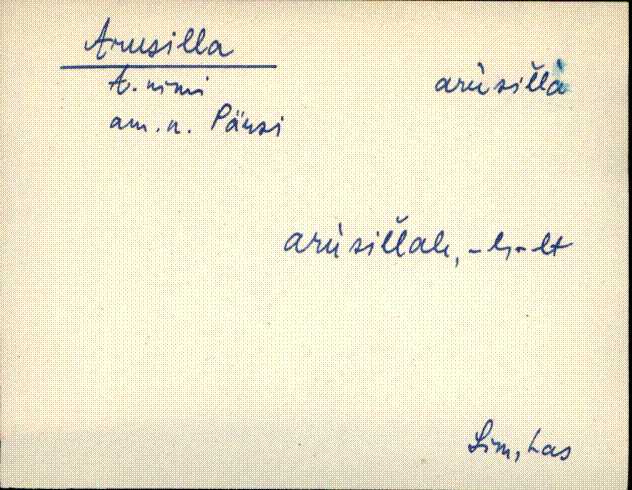 Arusilla
t. nimi
am. n. Pärsi
arùsillà
arùsillale, -l, -lt
Sim, Las